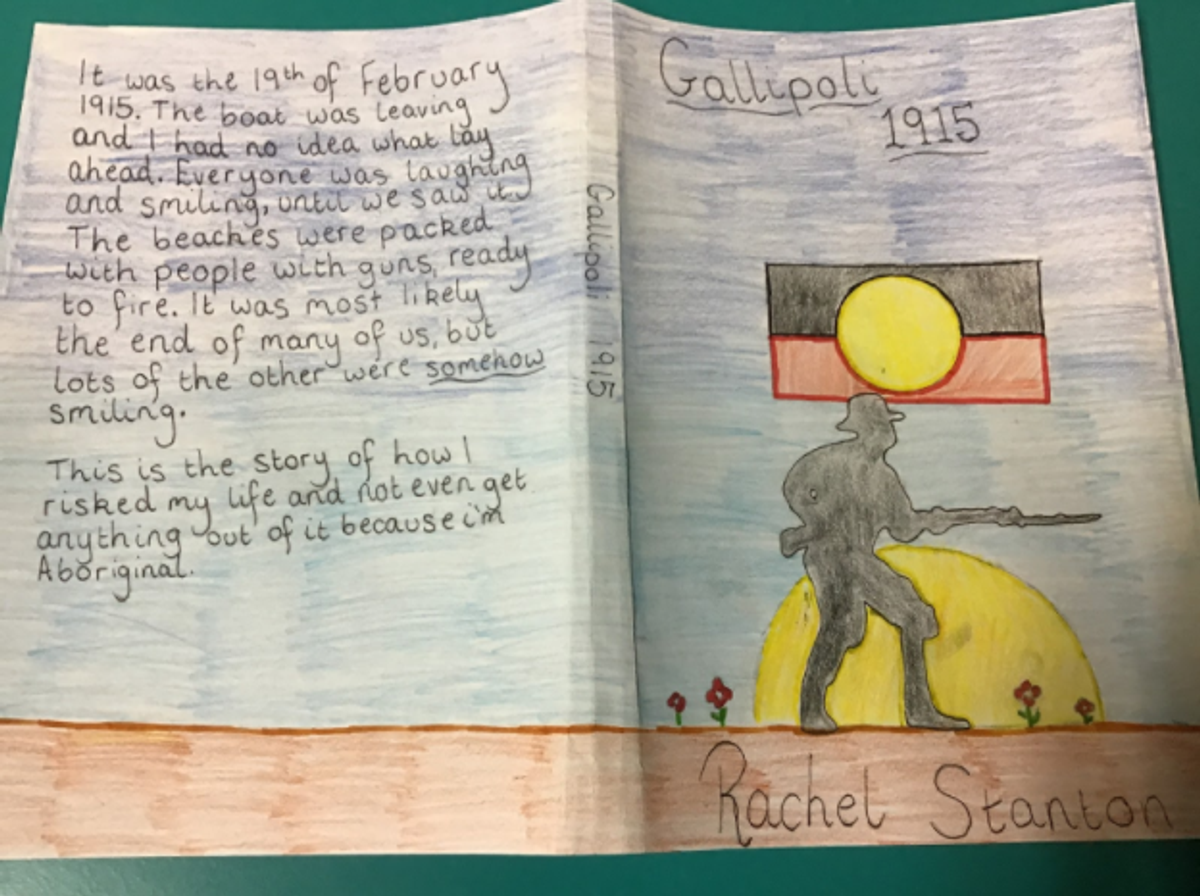 It was the 19th of February
1915. The boat was leaving
and I had no idea what lay
ahead. Everyone was laughing
and smiling, until we saw it.
The beaches were packed
with people with guns, ready
to fire. It was most likely
the end of many of us, but
lots of the other were somehow
smiling.
This is the story of how I
risked my life and not even get
anything out of it because i'm
Aboriginal.
Gallipoli 1915
Gallipoli
1915
Rachel Stanton